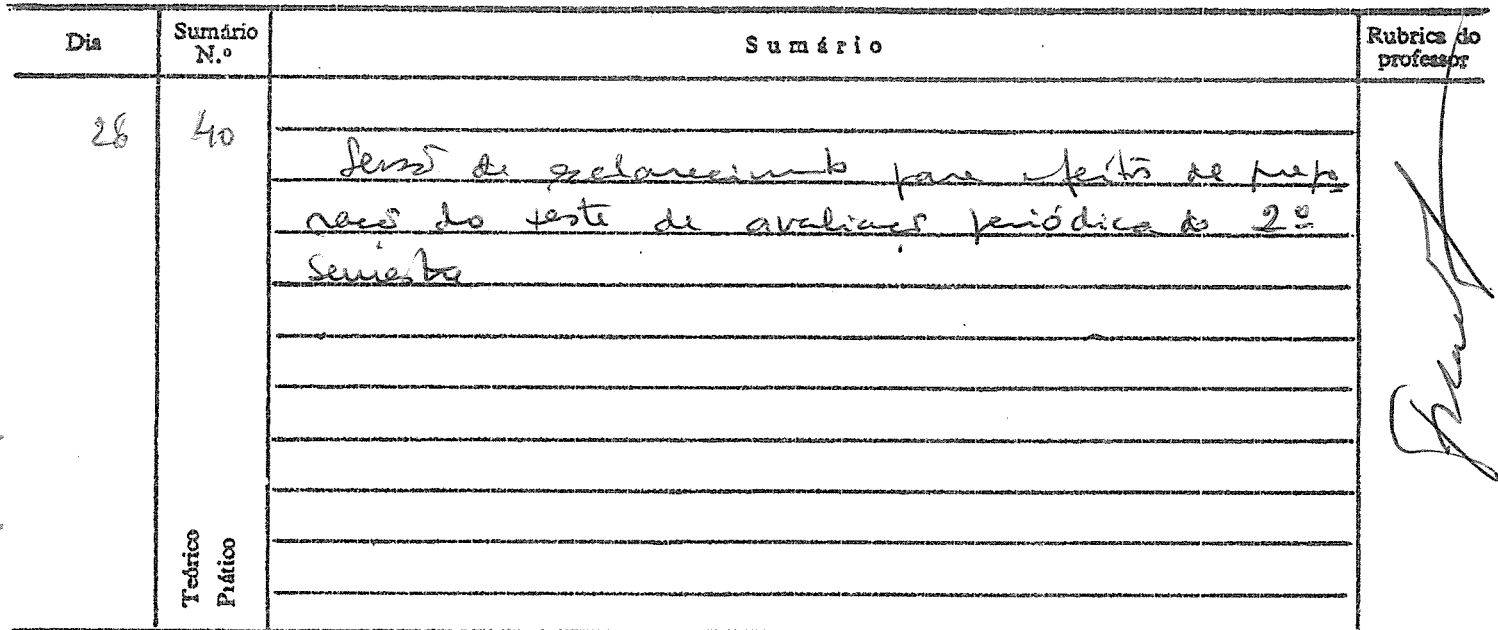 Dia
Sumário N.º
Sumário
Rubrica do professor
28 40
Sessão de esclarecimento para efeitos de prepa
ração do teste de avaliação periódica do 2º
Semestre
Teórico
Prático